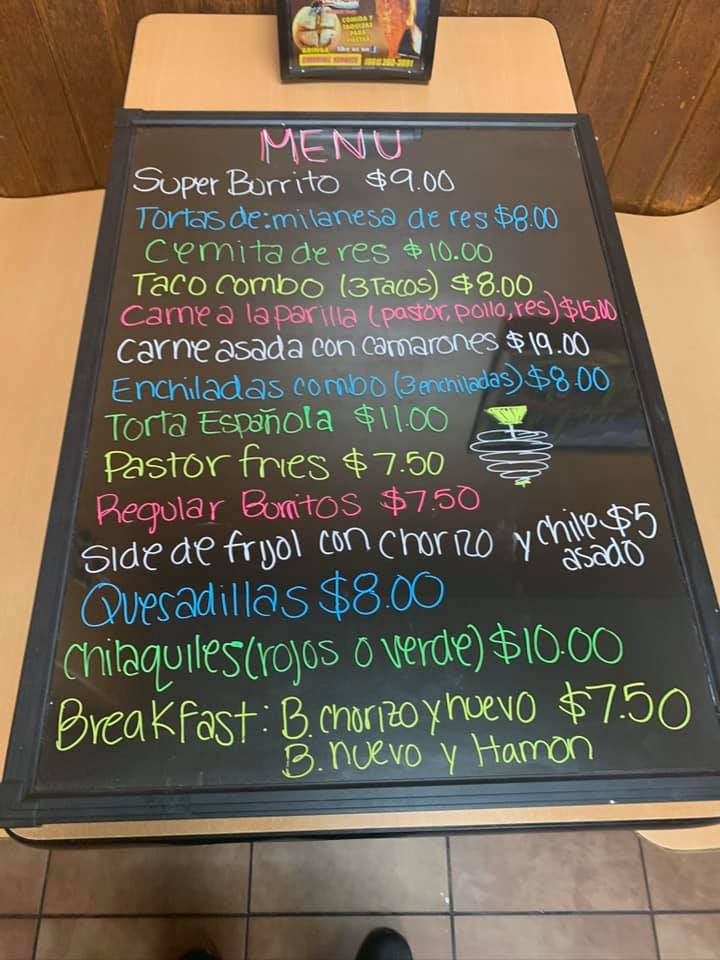 COMIDA Y
TAQUIZAS
PARA
FIESTAS
like us on f
CATERING SERVICE
MENU
Super Burrito $9.00
Tortas de: milanesa de res $8.00
Cemita de res $10.00
Taco combo (3 Tacos) $8.00
Carne a la parilla (pastor, pollo, res) $15.00
Carne asada con camarones $19.00
Enchiladas combo (3 enchiladas) $8.00
Torta Española $11.00
Pastor fries $7.50
Regular Burritos $7.50
Side de frijol con chorizo y chile $5
asado
Quesadillas $8.00
Chilaquiles (rojos o verde) $10.00
Breakfast: B. chorizo y huevo $7.50
B. huevo y Hamon